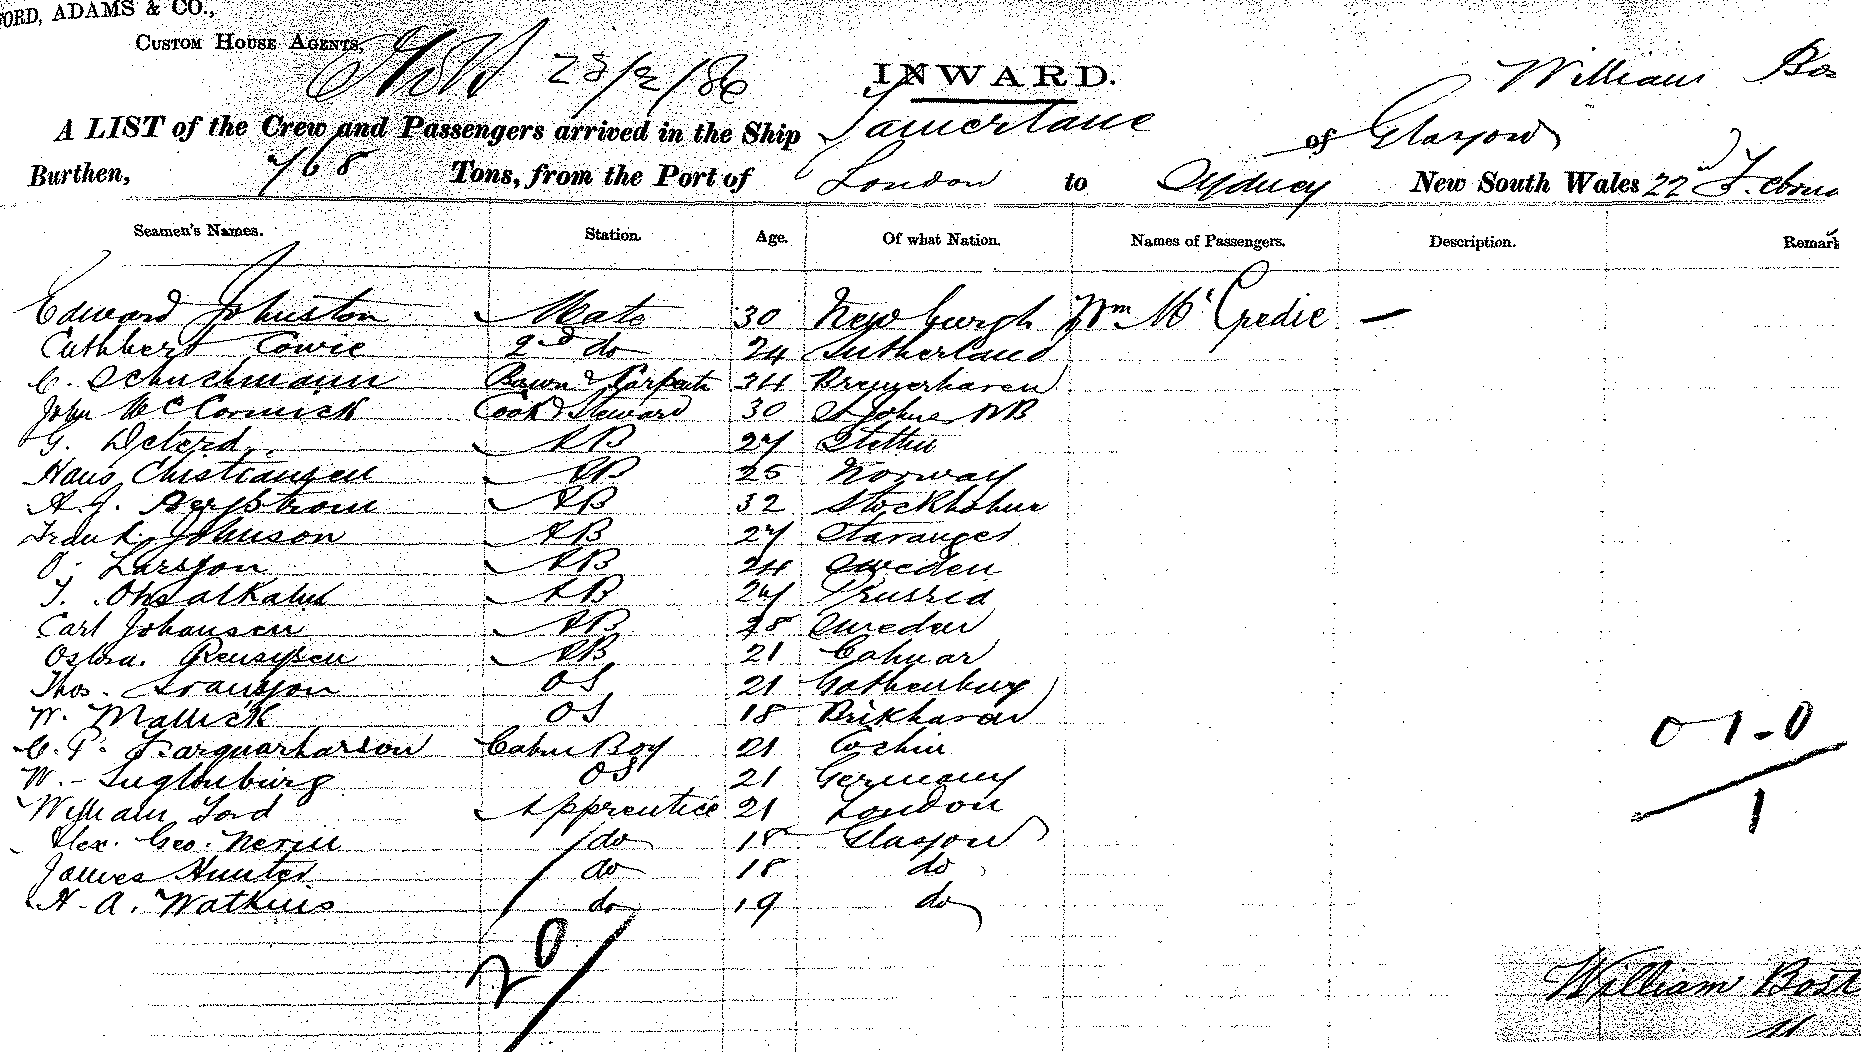 FORD, ADAMS & CO.,
CUSTOM HOUSE AGENTS.
23/2/86
INWARD.
William Bos
A LIST of the Crew and Passengers arrived in the Ship Tamerlane of Glasgow
Burthen, 768 Tons, from the Port of London to Sydney New South Wales 22d Februa
Seamen's Names. Station. Age. Of what Nation. Names of Passengers. Description. Remark
Edward Johnston Mate 30 Newburgh Wm McCredie —
Cuthbert Cowie 2nd do 24 Sutherland
C. Schuchmann Bosun & Carpentr 34 Bremerhaven
John McCormick Cook & Steward 30 St Johns NB
G. Deterd AB 27 Stettin
Hans Christiansen AB 25 Norway
A. J. Bergstrom AB 32 Stockholm
Frank Johnson AB 27 Stavanger
O. Larsson AB 24 Sweden
T. AB 27 Prussia
Carl Johansen AB 28 Sweden
AB 21
Thos. OS 21 Gothenburg
W. Mallick OS 18
C. P. Farquarharson Cabin Boy 21 Cochin
W. OS 21 Germany
William Ford Apprentice 21 London
Alex. Geo. Nevill do 18 Glasgow
James Hunter do 18 do
H. A. Watkins do 19 do
20
01-0
1
William Bost